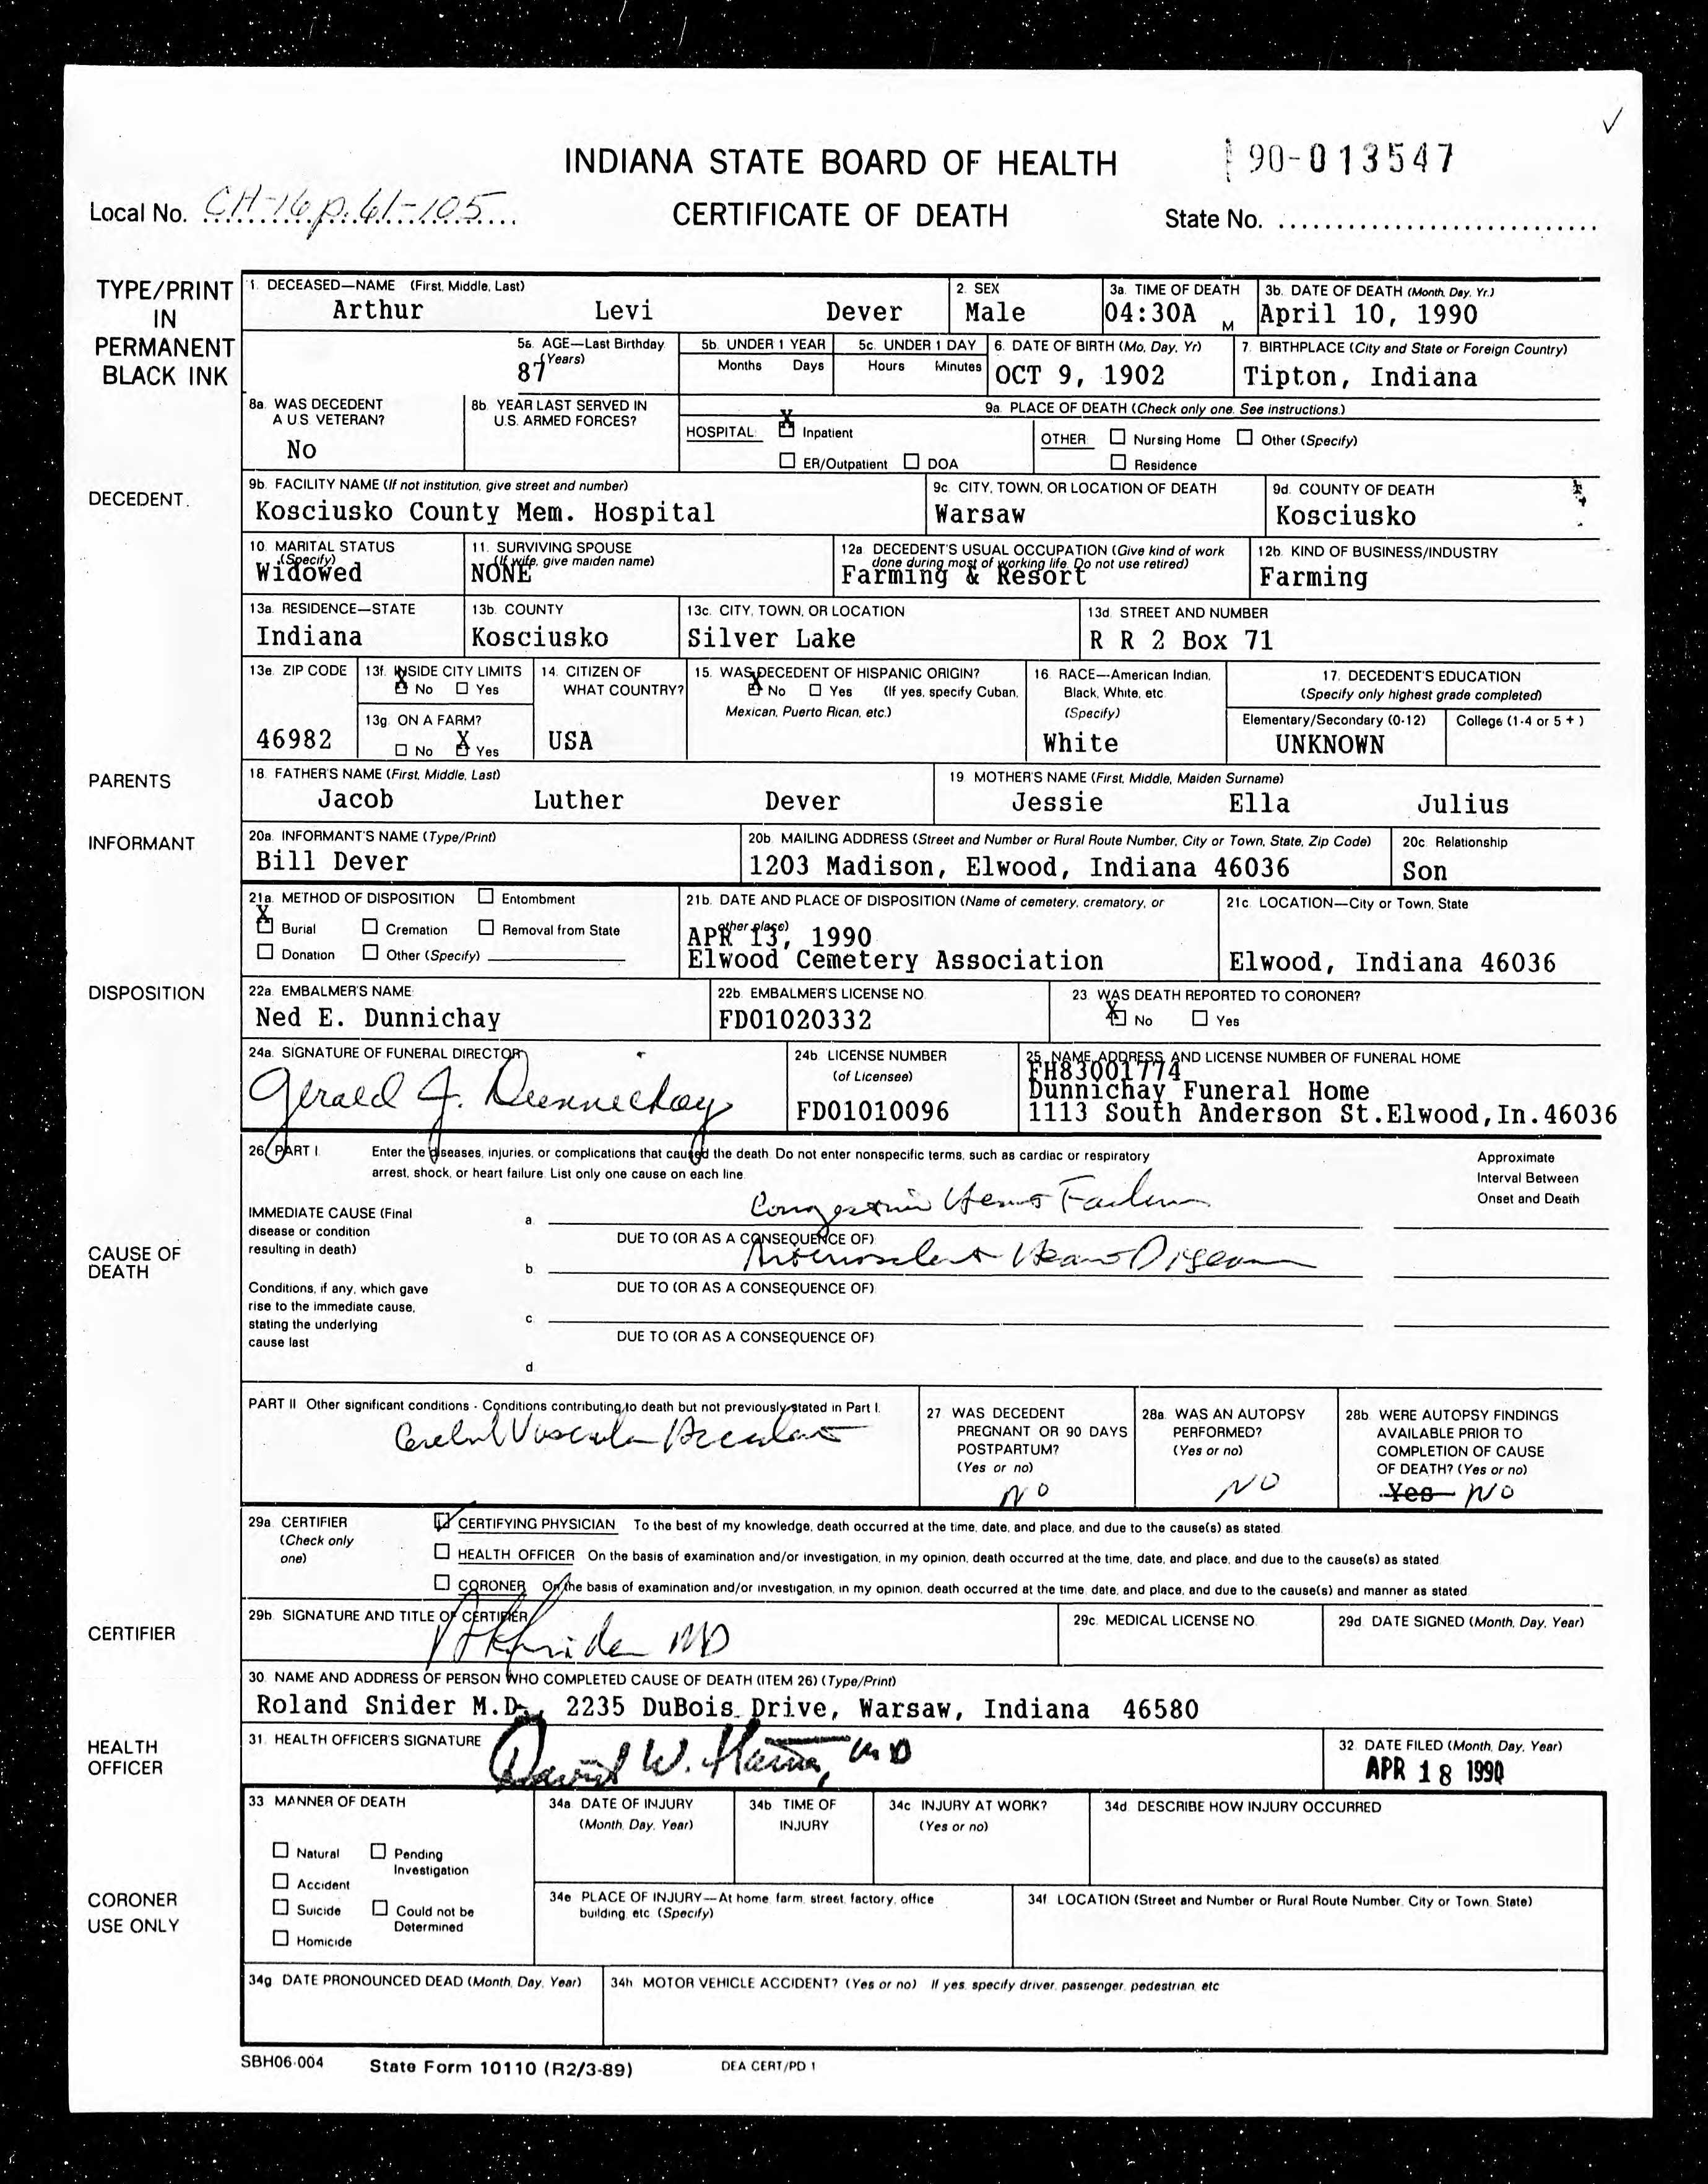 INDIANA STATE BOARD OF HEALTH
90-013547
Local No. CH-16 p. 61-105
CERTIFICATE OF DEATH
State No.
TYPE/PRINT IN PERMANENT BLACK INK
1. DECEASED—NAME (First, Middle, Last)
Arthur Levi Dever
2. SEX
Male
3a. TIME OF DEATH
04:30A M
3b. DATE OF DEATH (Month, Day, Yr.)
April 10, 1990
5a. AGE—Last Birthday (Years)
87
5b. UNDER 1 YEAR
Months Days
5c. UNDER 1 DAY
Hours Minutes
6. DATE OF BIRTH (Mo, Day, Yr)
OCT 9, 1902
7. BIRTHPLACE (City and State or Foreign Country)
Tipton, Indiana
8a. WAS DECEDENT A U.S. VETERAN?
No
8b. YEAR LAST SERVED IN U.S. ARMED FORCES?
9a. PLACE OF DEATH (Check only one. See instructions.)
HOSPITAL: X Inpatient
☐ ER/Outpatient ☐ DOA
OTHER: ☐ Nursing Home ☐ Other (Specify)
☐ Residence
DECEDENT
9b. FACILITY NAME (If not institution, give street and number)
Kosciusko County Mem. Hospital
9c. CITY, TOWN, OR LOCATION OF DEATH
Warsaw
9d. COUNTY OF DEATH
Kosciusko
10. MARITAL STATUS (Specify)
Widowed
11. SURVIVING SPOUSE (If wife, give maiden name)
NONE
12a. DECEDENT'S USUAL OCCUPATION (Give kind of work done during most of working life. Do not use retired)
Farming & Resort
12b. KIND OF BUSINESS/INDUSTRY
Farming
13a. RESIDENCE—STATE
Indiana
13b. COUNTY
Kosciusko
13c. CITY, TOWN, OR LOCATION
Silver Lake
13d. STREET AND NUMBER
R R 2 Box 71
13e. ZIP CODE
46982
13f. INSIDE CITY LIMITS
X No ☐ Yes
13g. ON A FARM?
☐ No X Yes
14. CITIZEN OF WHAT COUNTRY?
USA
15. WAS DECEDENT OF HISPANIC ORIGIN?
X No ☐ Yes (If yes, specify Cuban, Mexican, Puerto Rican, etc.)
16. RACE—American Indian, Black, White, etc. (Specify)
White
17. DECEDENT'S EDUCATION
(Specify only highest grade completed)
Elementary/Secondary (0-12)
UNKNOWN
College (1-4 or 5 + )
PARENTS
18. FATHER'S NAME (First, Middle, Last)
Jacob Luther Dever
19. MOTHER'S NAME (First, Middle, Maiden Surname)
Jessie Ella Julius
INFORMANT
20a. INFORMANT'S NAME (Type/Print)
Bill Dever
20b. MAILING ADDRESS (Street and Number or Rural Route Number, City or Town, State, Zip Code)
1203 Madison, Elwood, Indiana 46036
20c. Relationship
Son
21a. METHOD OF DISPOSITION ☐ Entombment
X Burial ☐ Cremation ☐ Removal from State
☐ Donation ☐ Other (Specify)
21b. DATE AND PLACE OF DISPOSITION (Name of cemetery, crematory, or other place)
APR 13, 1990
Elwood Cemetery Association
21c. LOCATION—City or Town, State
Elwood, Indiana 46036
DISPOSITION
22a. EMBALMER'S NAME:
Ned E. Dunnichay
22b. EMBALMER'S LICENSE NO.
FD01020332
23. WAS DEATH REPORTED TO CORONER?
X No ☐ Yes
24a. SIGNATURE OF FUNERAL DIRECTOR
Gerald J. Dunnichay
24b. LICENSE NUMBER (of Licensee)
FD01010096
25. NAME, ADDRESS AND LICENSE NUMBER OF FUNERAL HOME
FH83001774
Dunnichay Funeral Home
1113 South Anderson St.Elwood,In.46036
CAUSE OF DEATH
26. PART I. Enter the diseases, injuries, or complications that caused the death. Do not enter nonspecific terms, such as cardiac or respiratory
arrest, shock, or heart failure. List only one cause on each line.
Approximate Interval Between Onset and Death
IMMEDIATE CAUSE (Final disease or condition resulting in death)
a. Congestive Heart Failure
DUE TO (OR AS A CONSEQUENCE OF):
b. Arteriosclerot Heart Disease
DUE TO (OR AS A CONSEQUENCE OF):
Conditions, if any, which gave rise to the immediate cause, stating the underlying cause last
c.
DUE TO (OR AS A CONSEQUENCE OF):
d.
PART II. Other significant conditions - Conditions contributing to death but not previously stated in Part I.
Cerebral Vascular Accident
27. WAS DECEDENT PREGNANT OR 90 DAYS POSTPARTUM? (Yes or no)
NO
28a. WAS AN AUTOPSY PERFORMED? (Yes or no)
NO
28b. WERE AUTOPSY FINDINGS AVAILABLE PRIOR TO COMPLETION OF CAUSE OF DEATH? (Yes or no)
Yes NO
CERTIFIER
29a. CERTIFIER (Check only one)
☑ CERTIFYING PHYSICIAN To the best of my knowledge, death occurred at the time, date, and place, and due to the cause(s) as stated.
☐ HEALTH OFFICER On the basis of examination and/or investigation, in my opinion, death occurred at the time, date, and place, and due to the cause(s) as stated.
☐ CORONER On the basis of examination and/or investigation, in my opinion, death occurred at the time, date, and place, and due to the cause(s) and manner as stated.
29b. SIGNATURE AND TITLE OF CERTIFIER
MD
29c. MEDICAL LICENSE NO.
29d. DATE SIGNED (Month, Day, Year)
30. NAME AND ADDRESS OF PERSON WHO COMPLETED CAUSE OF DEATH (ITEM 26) (Type/Print)
Roland Snider M.D., 2235 DuBois Drive, Warsaw, Indiana 46580
HEALTH OFFICER
31. HEALTH OFFICER'S SIGNATURE
David W. MD
32. DATE FILED (Month, Day, Year)
APR 18 1990
CORONER USE ONLY
33. MANNER OF DEATH
☐ Natural ☐ Pending Investigation
☐ Accident
☐ Suicide ☐ Could not be Determined
☐ Homicide
34a. DATE OF INJURY (Month, Day, Year)
34b. TIME OF INJURY
34c. INJURY AT WORK? (Yes or no)
34d. DESCRIBE HOW INJURY OCCURRED
34e. PLACE OF INJURY—At home, farm, street, factory, office building, etc. (Specify)
34f. LOCATION (Street and Number or Rural Route Number, City or Town, State)
34g. DATE PRONOUNCED DEAD (Month, Day, Year)
34h. MOTOR VEHICLE ACCIDENT? (Yes or no) If yes, specify driver, passenger, pedestrian, etc.
SBH06-004 State Form 10110 (R2/3-89) DEA CERT/PD 1